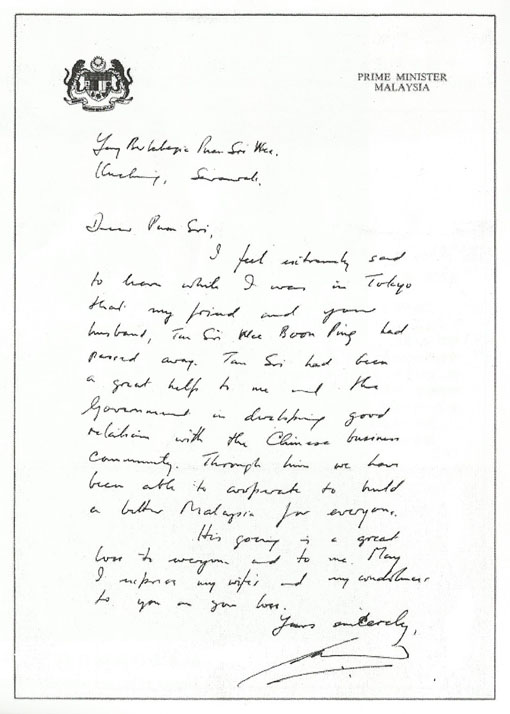 PRIME MINISTER
MALAYSIA
Yang Berbahagia Puan Sri Wee.
Kuching, Sarawak.
Dear Puan Sri,
I feel extremely sad
to learn while I was in Tokyo
that my friend and your
husband, Tan Sri Wee Boon Ping had
passed away. Tan Sri had been
a great help to me and the
Government in developing good
relations with the Chinese business
community. Through him we have
been able to cooperate to build
a better Malaysia for everyone.
His going is a great
loss to everyone and to me. May
I express my wife's and my condolences
to you on your loss.
Yours sincerely,